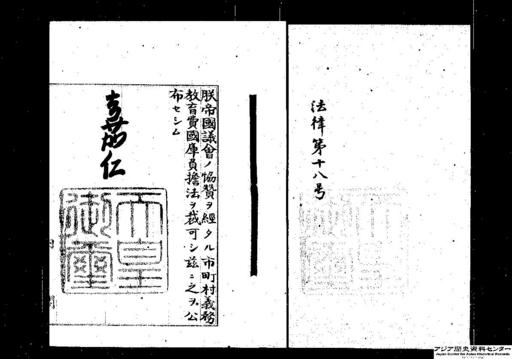 法律第十八号
朕帝國議會ノ協賛ヲ經タル市町村義務
教育費國庫負擔法ヲ裁可シ茲ニ之ヲ公
布セシム
嘉仁
天皇
御璽
アジア歴史資料センター
Japan Center for Asian Historical Records